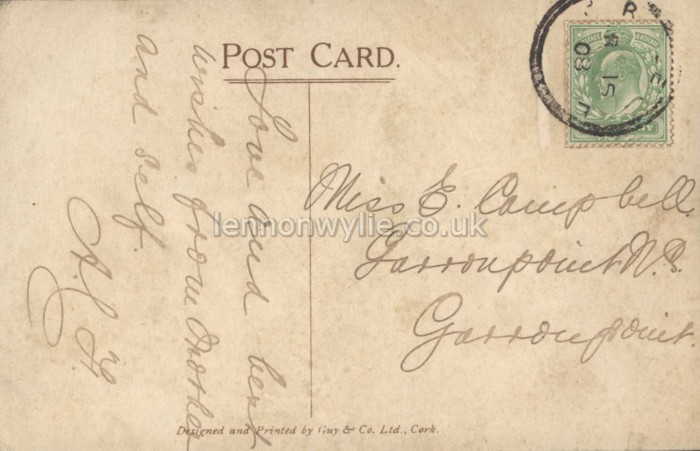 POST CARD.
Love and best
wishes from Mother
and self.
Miss E. Campbell
Garronpoint N.S.
Garronpoint.
lennonwylie.co.uk
Designed and Printed by Guy & Co. Ltd., Cork.
15
08